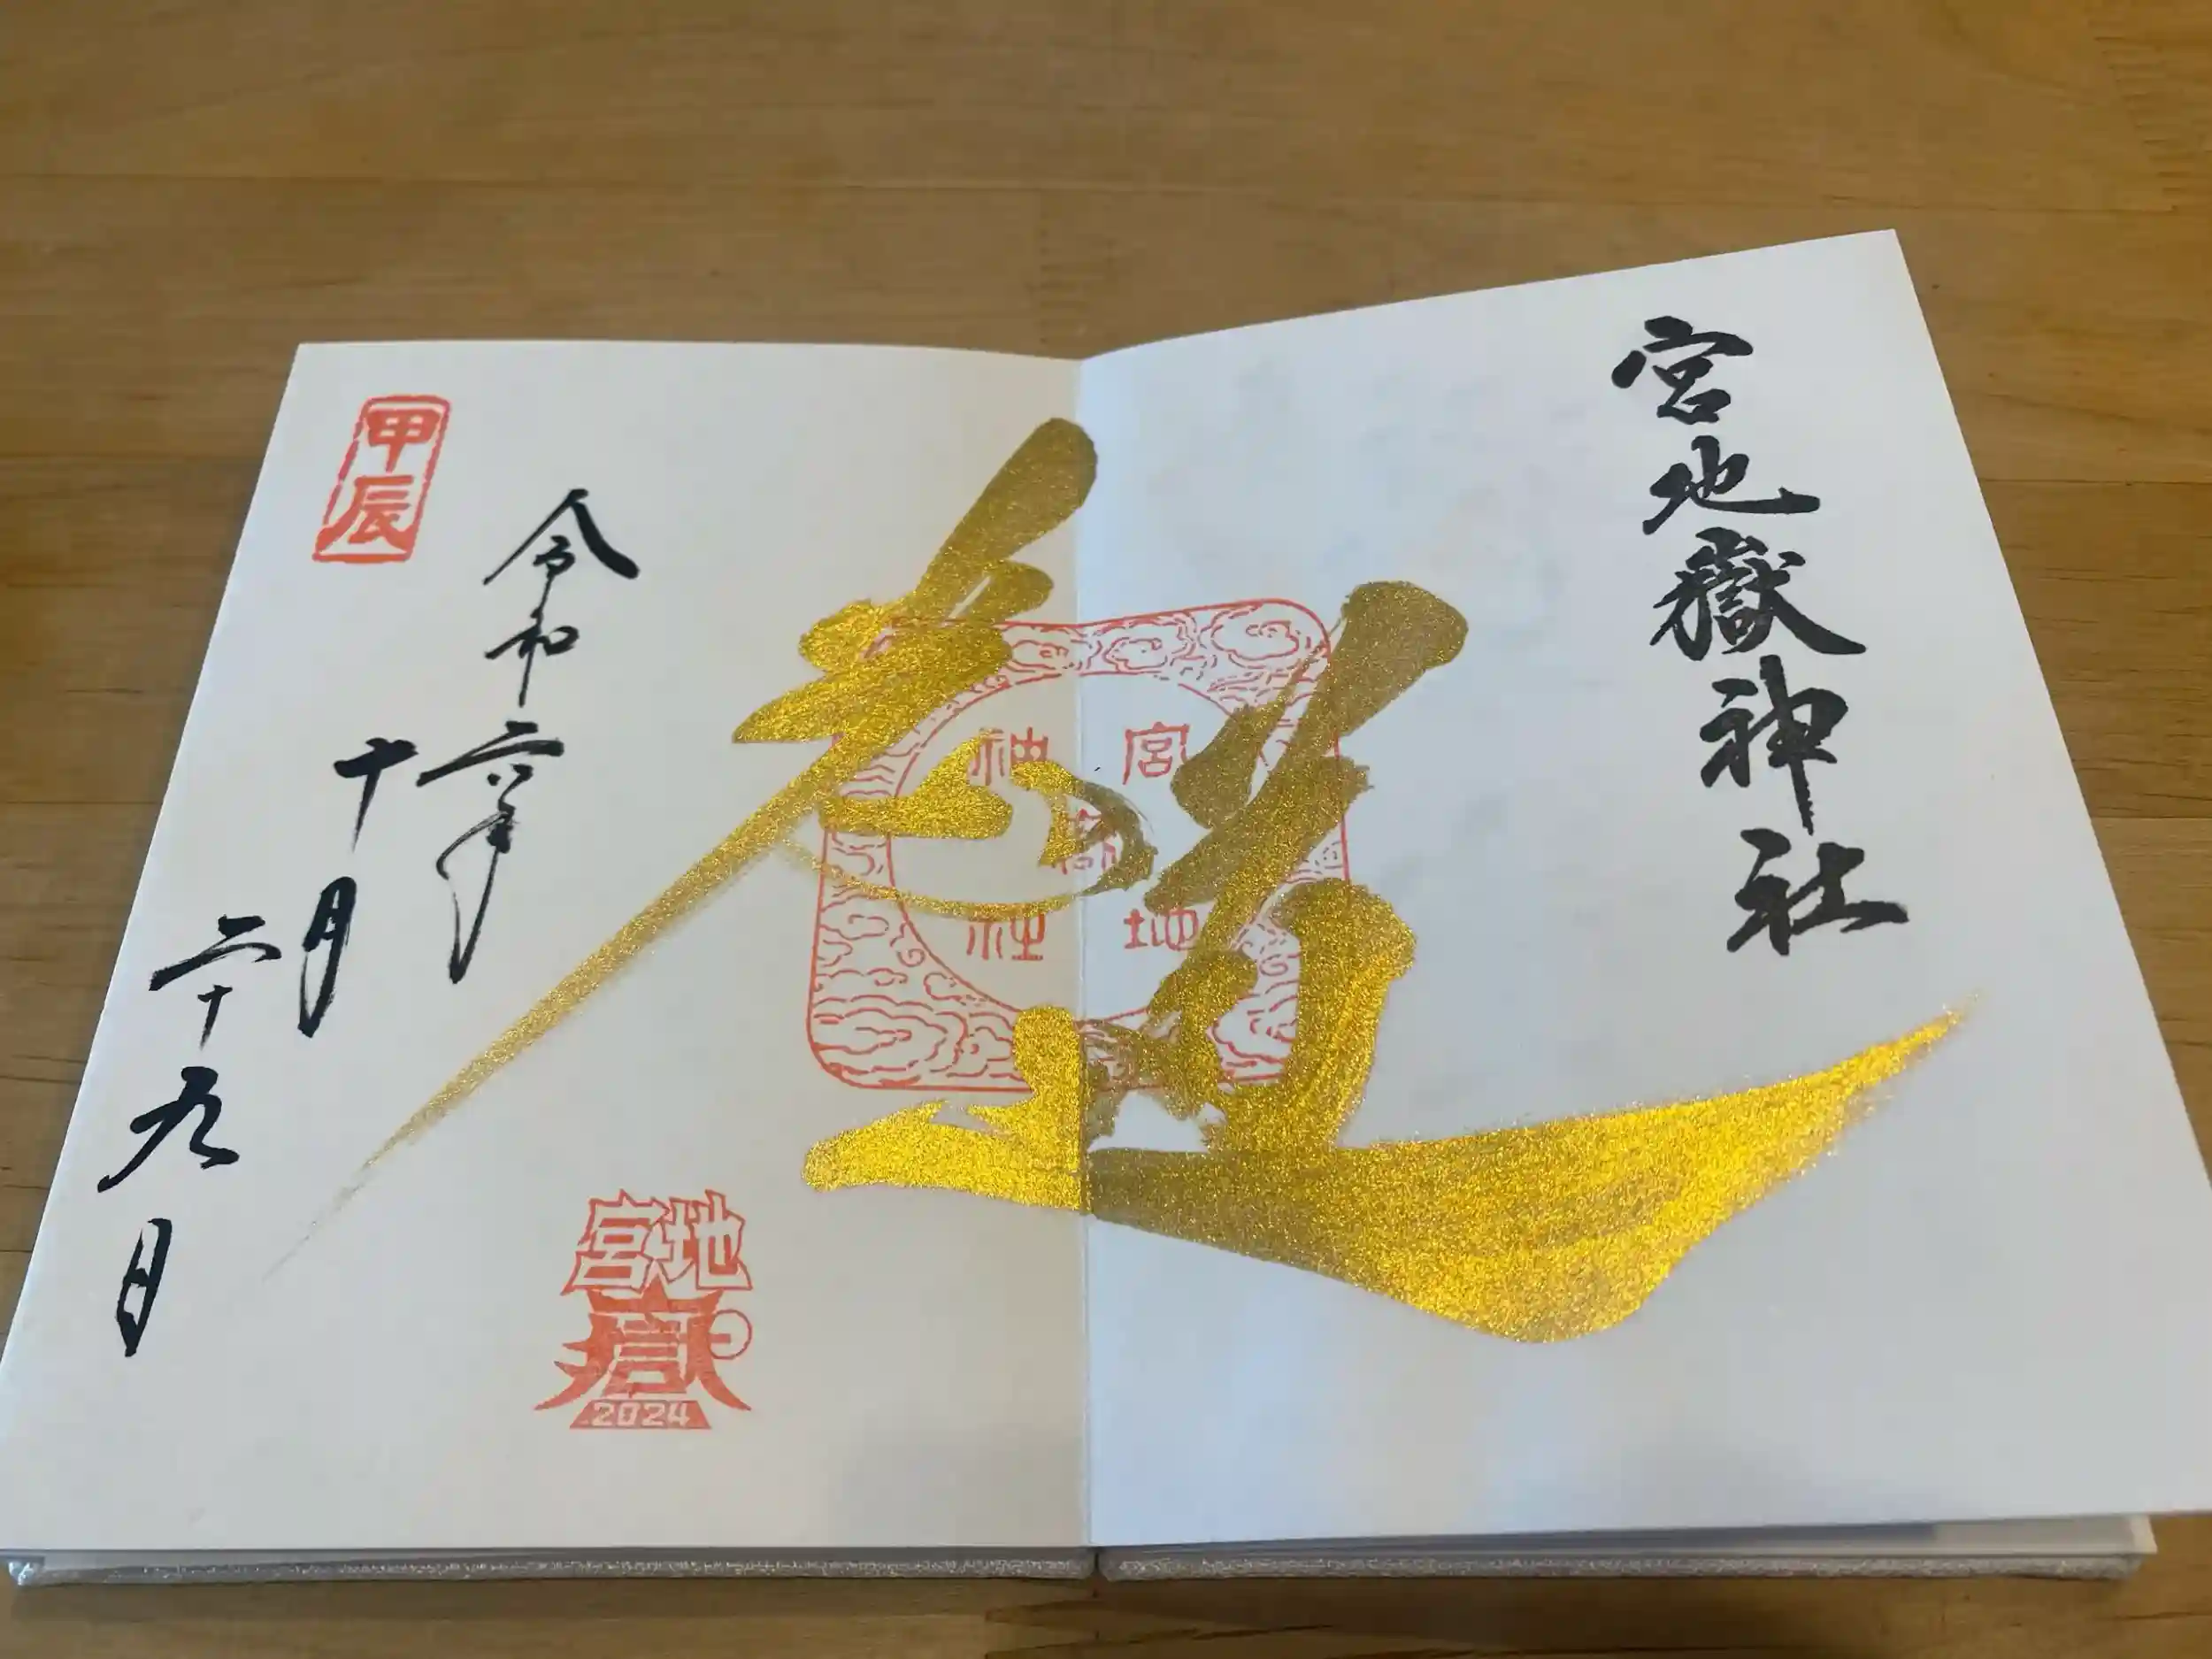 宮地嶽神社
宮地嶽神社
令和六年
十月
二十九日
甲辰
宮地
嶽
2024